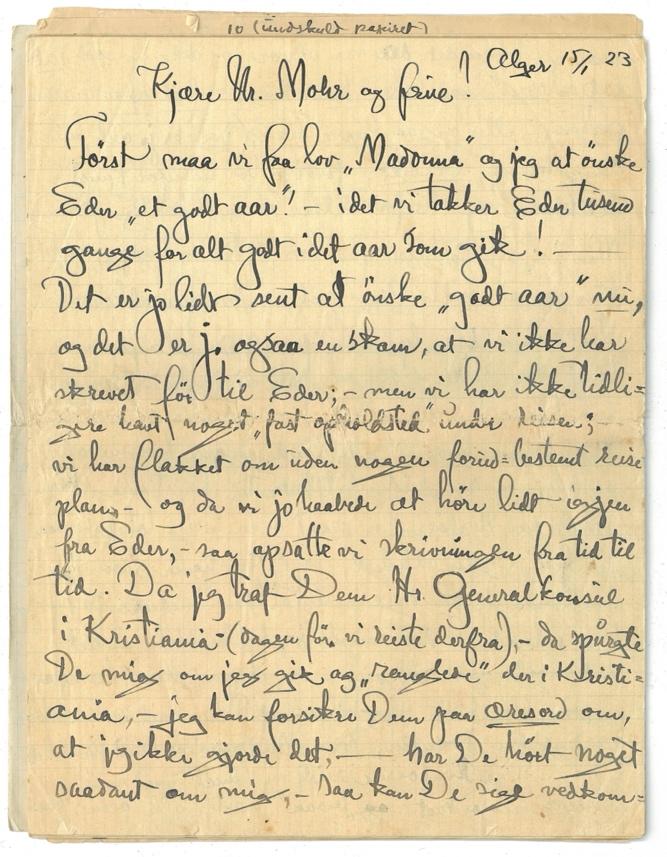 10 (undskyld papiret)
Alger 15/1 23
Kjære Hr. Mohr og frue!
Först maa vi faa lov „Madonna" og jeg at önske
Eder „et godt aar"! – idet vi takker Eder tusend
gange for alt godt i det aar som gik! —
Det er jo lidt sent at önske „godt aar" nu,
og det er jo ogsaa en skam, at vi ikke har
skrevet för til Eder; – men vi har ikke tidli=
gere havt noget „fast opholdsted" under reisen; –
vi har flakket om uden nogen forud=bestemt reise
plan, – og da vi jo haabede at höre lidt igjen
fra Eder, – saa opsatte vi skrivningen fra tid til
tid. Da jeg traf Dem Hr. Generalkonsul
i Kristiania – (dagen för vi reiste derfra), – da spurgte
De mig om jeg gik og „ranglede" der i Kristi=
ania, – jeg kan forsikre Dem paa æresord om,
at jeg ikke gjorde det, — har De hört noget
saadant om mig, – saa kan De sige vedkom=